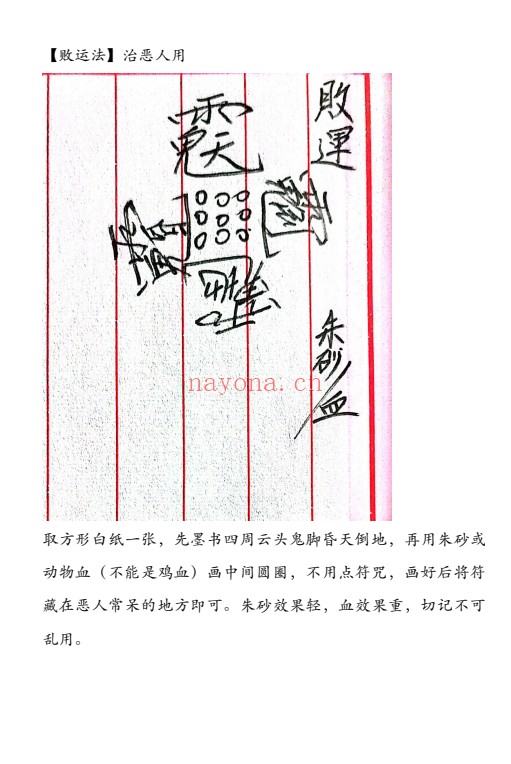 【败运法】治恶人用
敗運
朱砂/血
nayona.cn
取方形白纸一张，先墨书四周云头鬼脚昏天倒地，再用朱砂或
动物血（不能是鸡血）画中间圆圈，不用点符咒，画好后将符
藏在恶人常呆的地方即可。朱砂效果轻，血效果重，切记不可
乱用。